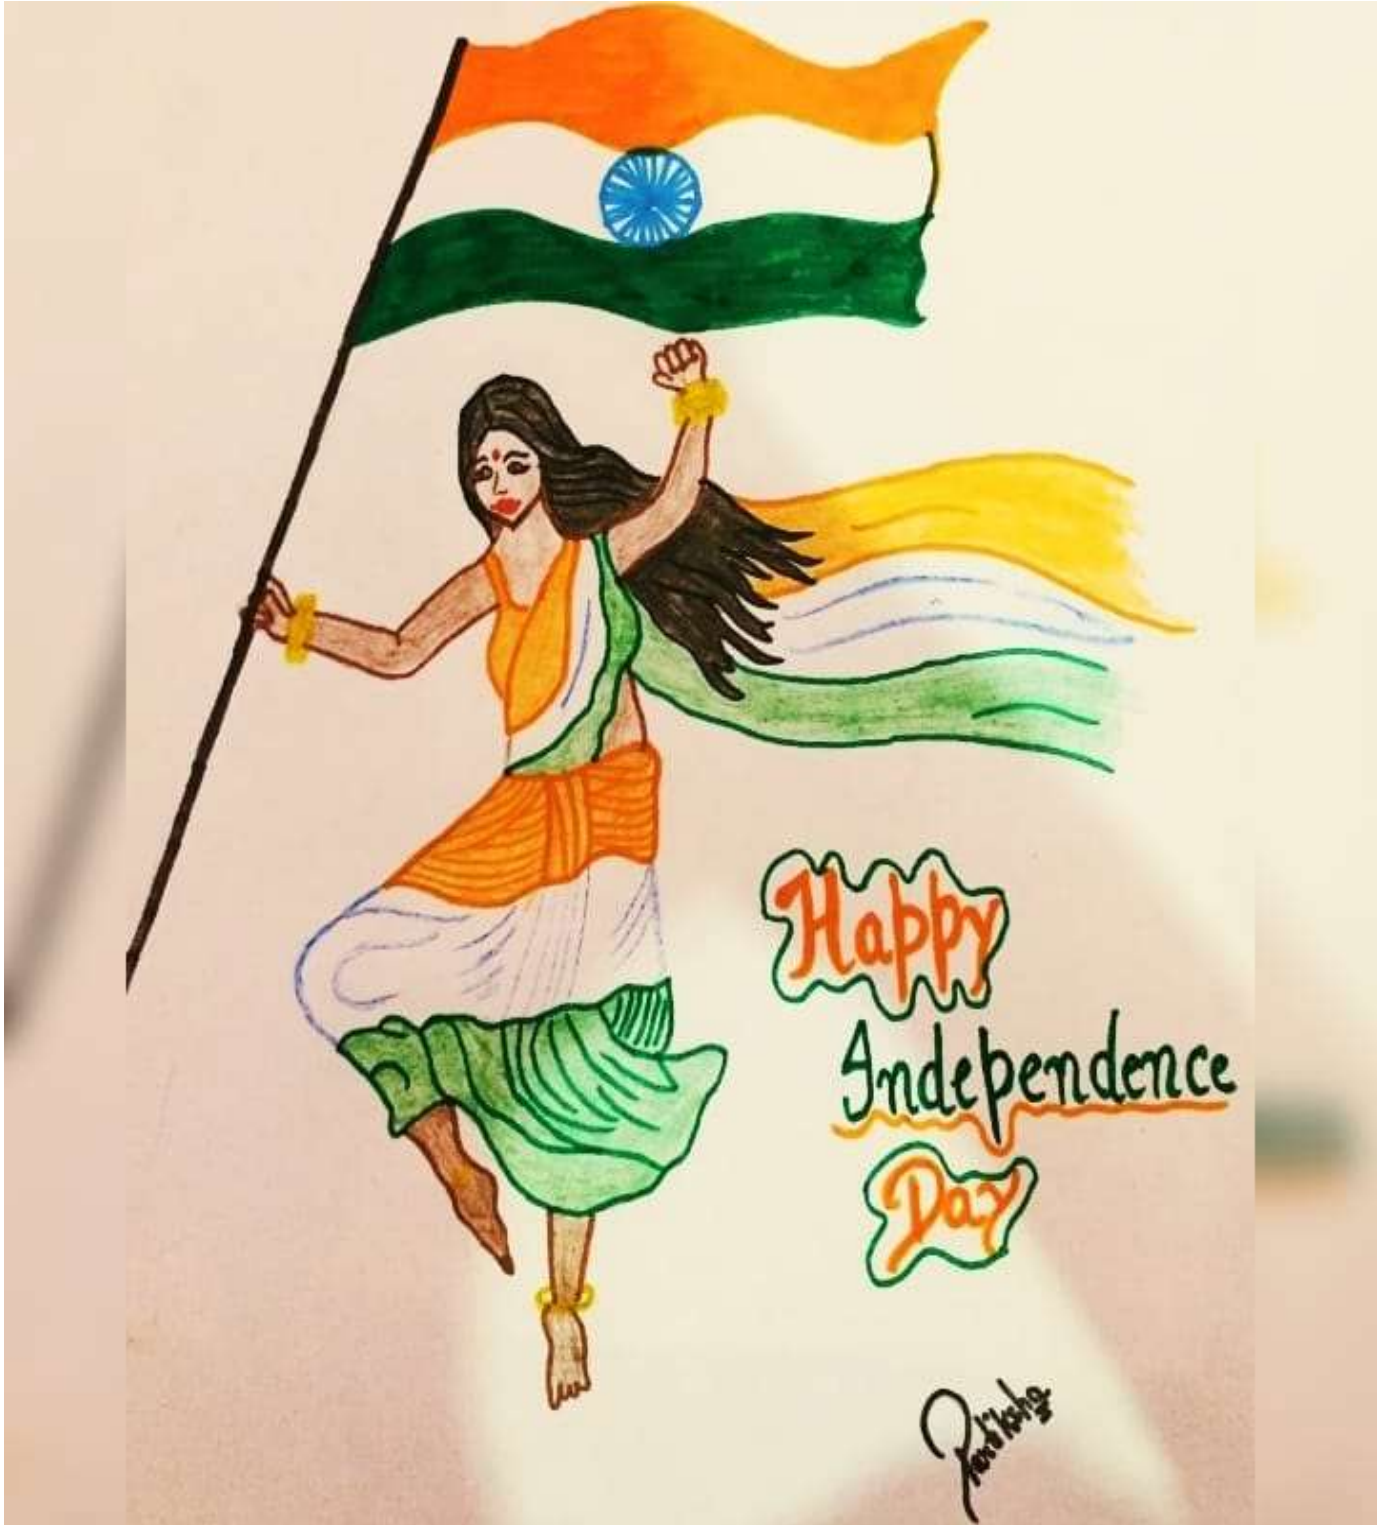 Happy
Independence
Day
Pratiksha